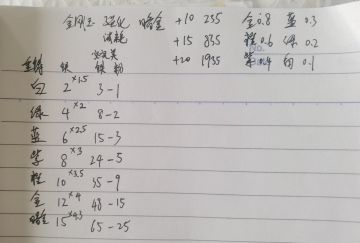 金刚王 强化 暗金 +10 255 金0.8 蓝0.3
减耗 +15 835 橙0.6 绿0.2
+20 1935 紫0.4 白0.1
白 2×1.5 3-1
绿 4×2 8-2
蓝 6×2.5 15-3
紫 8×3 24-5
橙 10×3.5 35-9
金 12×4 48-15
暗金 15×4.3 65-25